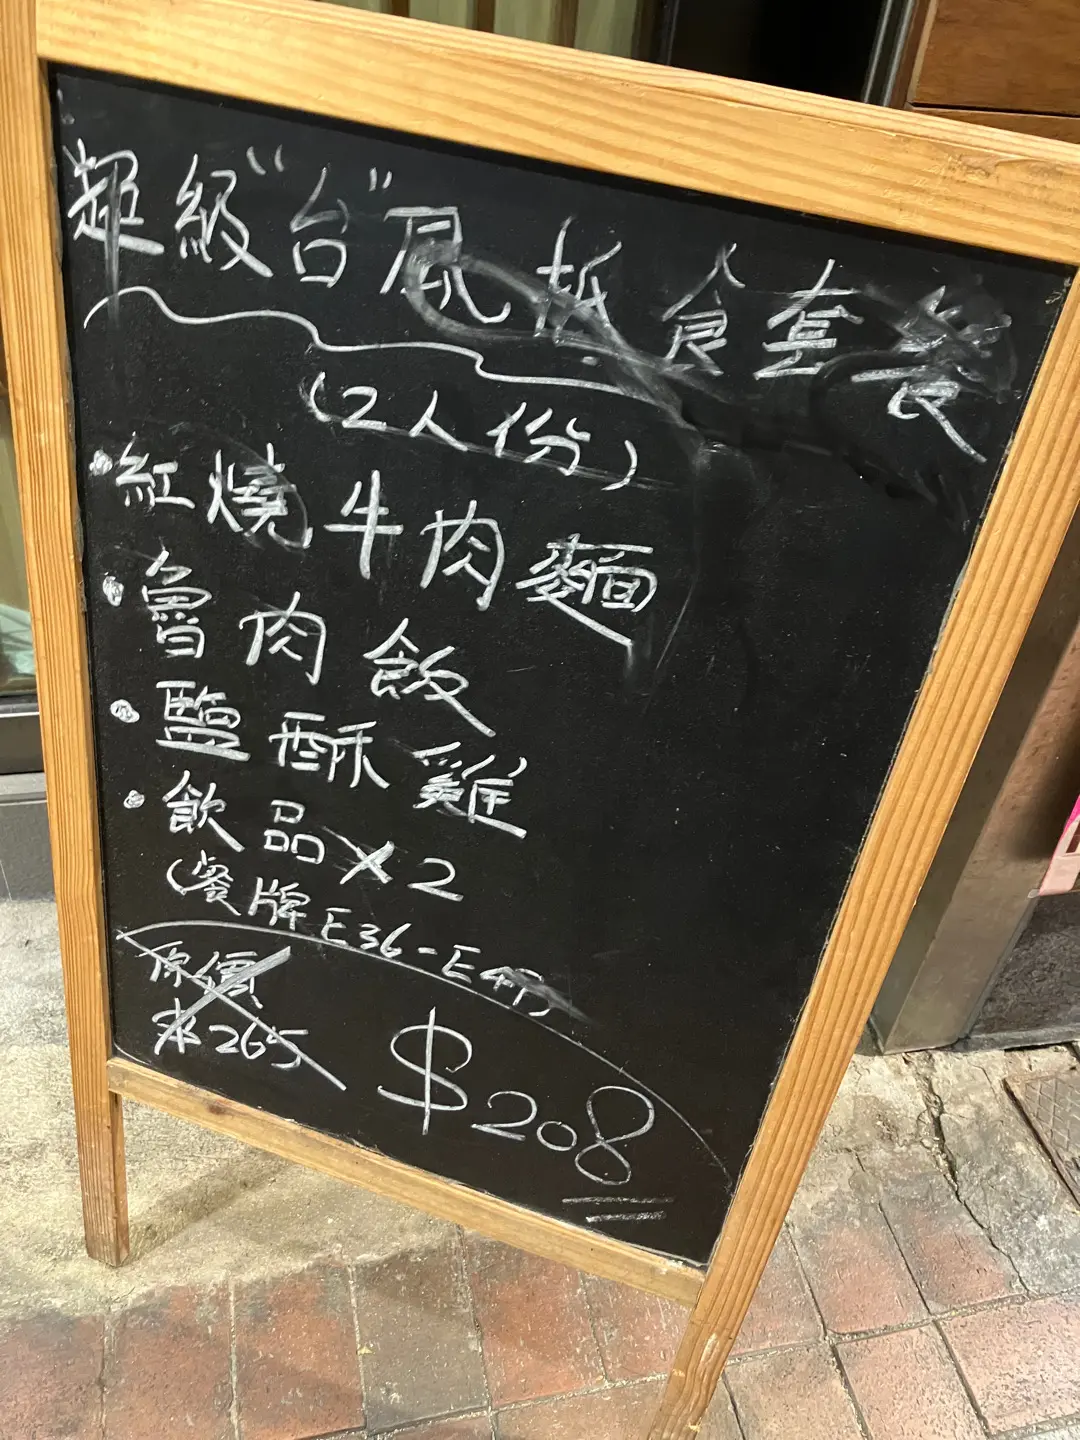 超級"台"風抵食套餐
(2人份)
• 紅燒牛肉麵
• 魯肉飯
• 鹽酥雞
• 飲品 x 2
(餐牌 E36 - E49)
原價
$208